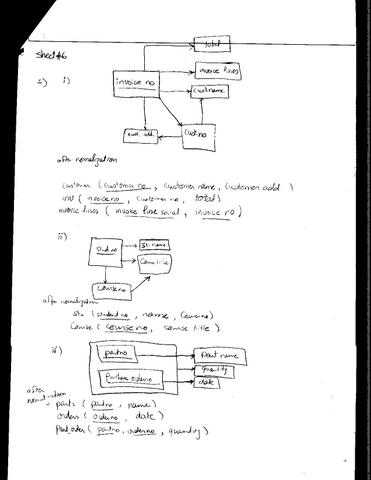 Sheet #6
1) i)
total
invoice lines
invoice no
Cust name
cust. add.
Cust no
after normalization
customer ( customer no , customer name, customer add )
inv ( invoice no , customer no, total )
invoice lines ( invoice line serial , invoice no )
ii)
stud no
St. name
Course title
Course no
after normalization
Stu ( student no , name , Course no )
Course ( course no , course title )
iii)
part no
Part name
quantity
Purchase order no
date
after
normalization
parts ( part no , name )
orders ( order no , date )
Part order ( part no, order no , quantity )